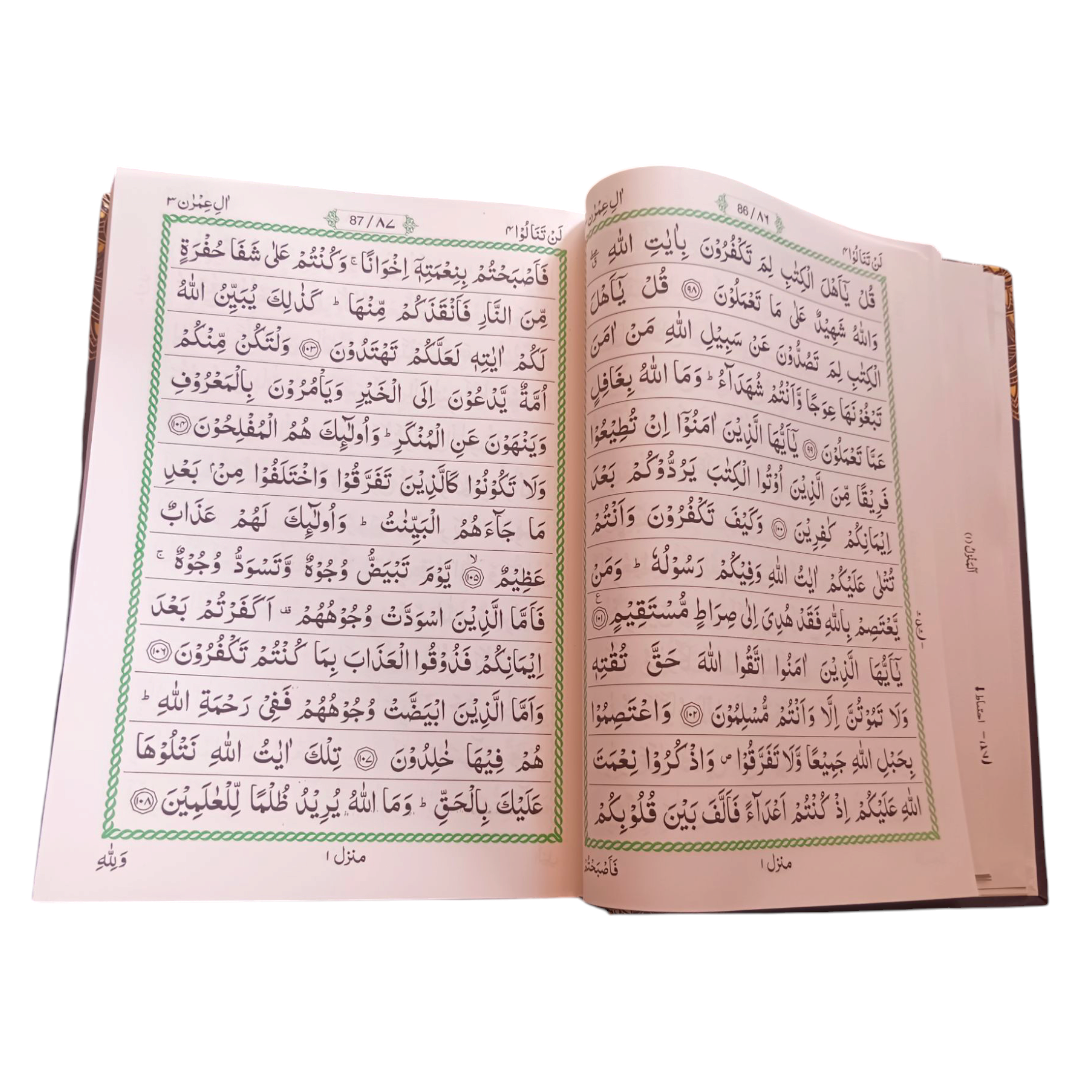 لَنْ تَنَالُوا ٤
86/٨٦
اٰلِ عِمْرٰن ٣
قُلْ يٰۤاَهْلَ الْكِتٰبِ لِمَ تَكْفُرُوْنَ بِاٰيٰتِ اللّٰهِ ۖ
وَاللّٰهُ شَهِيْدٌ عَلٰى مَا تَعْمَلُوْنَ ﴿٩٨﴾ قُلْ يٰۤاَهْلَ
الْكِتٰبِ لِمَ تَصُدُّوْنَ عَنْ سَبِيْلِ اللّٰهِ مَنْ اٰمَنَ
تَبْغُوْنَهَا عِوَجًا وَّاَنْتُمْ شُهَدَآءُ ؕ وَمَا اللّٰهُ بِغَافِلٍ
عَمَّا تَعْمَلُوْنَ ﴿٩٩﴾ يٰۤاَيُّهَا الَّذِيْنَ اٰمَنُوْۤا اِنْ تُطِيْعُوْا
فَرِيْقًا مِّنَ الَّذِيْنَ اُوْتُوا الْكِتٰبَ يَرُدُّوْكُمْ بَعْدَ
اِيْمَانِكُمْ كٰفِرِيْنَ ﴿١٠٠﴾ وَكَيْفَ تَكْفُرُوْنَ وَاَنْتُمْ
تُتْلٰى عَلَيْكُمْ اٰيٰتُ اللّٰهِ وَفِيْكُمْ رَسُوْلُهٗ ؕ وَمَنْ
يَّعْتَصِمْ بِاللّٰهِ فَقَدْ هُدِيَ اِلٰى صِرَاطٍ مُّسْتَقِيْمٍ ﴿١٠١﴾
يٰۤاَيُّهَا الَّذِيْنَ اٰمَنُوا اتَّقُوا اللّٰهَ حَقَّ تُقٰتِهٖ
وَلَا تَمُوْتُنَّ اِلَّا وَاَنْتُمْ مُّسْلِمُوْنَ ﴿١٠٢﴾ وَاعْتَصِمُوْا
بِحَبْلِ اللّٰهِ جَمِيْعًا وَّلَا تَفَرَّقُوْا ص وَاذْكُرُوْا نِعْمَتَ
اللّٰهِ عَلَيْكُمْ اِذْ كُنْتُمْ اَعْدَآءً فَاَلَّفَ بَيْنَ قُلُوْبِكُمْ
منزل ١
فَاَصْبَحْتُمْ
لَنْ تَنَالُوا ٤
87/٨٧
اٰلِ عِمْرٰن ٣
فَاَصْبَحْتُمْ بِنِعْمَتِهٖۤ اِخْوَانًا ۚ وَكُنْتُمْ عَلٰى شَفَا حُفْرَةٍ
مِّنَ النَّارِ فَاَنْقَذَكُمْ مِّنْهَا ؕ كَذٰلِكَ يُبَيِّنُ اللّٰهُ
لَكُمْ اٰيٰتِهٖ لَعَلَّكُمْ تَهْتَدُوْنَ ﴿١٠٣﴾ وَلْتَكُنْ مِّنْكُمْ
اُمَّةٌ يَّدْعُوْنَ اِلَى الْخَيْرِ وَيَاْمُرُوْنَ بِالْمَعْرُوْفِ
وَيَنْهَوْنَ عَنِ الْمُنْكَرِ ؕ وَاُولٰٓئِكَ هُمُ الْمُفْلِحُوْنَ ﴿١٠٤﴾
وَلَا تَكُوْنُوْا كَالَّذِيْنَ تَفَرَّقُوْا وَاخْتَلَفُوْا مِنْۢ بَعْدِ
مَا جَآءَهُمُ الْبَيِّنٰتُ ؕ وَاُولٰٓئِكَ لَهُمْ عَذَابٌ
عَظِيْمٌ ﴿١٠٥﴾ۙ يَّوْمَ تَبْيَضُّ وُجُوْهٌ وَّتَسْوَدُّ وُجُوْهٌ ۚ
فَاَمَّا الَّذِيْنَ اسْوَدَّتْ وُجُوْهُهُمْ ۟ اَكَفَرْتُمْ بَعْدَ
اِيْمَانِكُمْ فَذُوْقُوا الْعَذَابَ بِمَا كُنْتُمْ تَكْفُرُوْنَ ﴿١٠٦﴾
وَاَمَّا الَّذِيْنَ ابْيَضَّتْ وُجُوْهُهُمْ فَفِيْ رَحْمَةِ اللّٰهِ ؕ
هُمْ فِيْهَا خٰلِدُوْنَ ﴿١٠٧﴾ تِلْكَ اٰيٰتُ اللّٰهِ نَتْلُوْهَا
عَلَيْكَ بِالْحَقِّ ؕ وَمَا اللّٰهُ يُرِيْدُ ظُلْمًا لِّلْعٰلَمِيْنَ ﴿١٠٨﴾
منزل ١
وَلِلّٰهِ